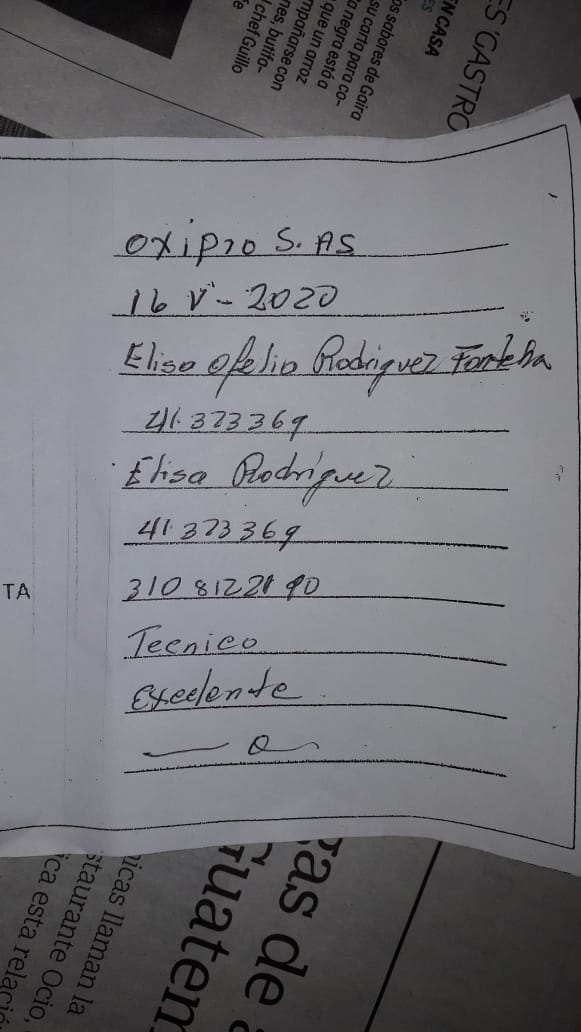 ES GASTRO
EN CASA
os sabores de Gaira
su carta para co-
a negra está a
que un arroz
mpañarse con
nes, butifa-
chef Guillo
OXIPRO S.AS
16 V - 2020
Elisa Ofelia Rodriguez
41.373369
Elisa Rodríguez
41.373369
TA
310 8122190
Tecnico
Excelente
ras de
Guatem
icas llaman la
staurante Ocio,
ica esta relació